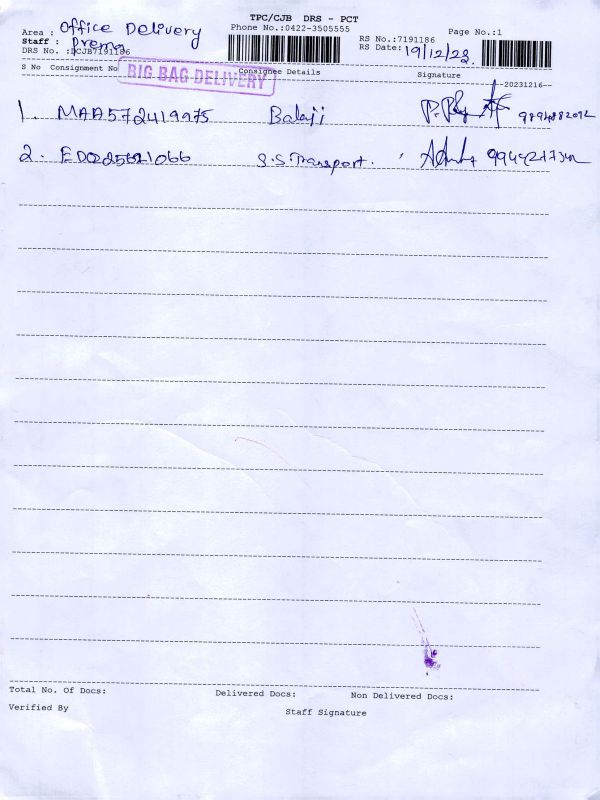 TPC/CJB DRS - PCT
Area : Office Delivery
Phone No.:0422-3505555
Page No.:1
Staff : Prema
RS No.:7191186
DRS No. :DCJB7191186
RS Date: 19/12/23.
BIG BAG DELIVERY
S No Consignment No Consignee Details Signature
--20231216--
1. MAA572419975 Balaji
2. S.S Transport.
Total No. Of Docs: Delivered Docs: Non Delivered Docs:
Verified By
Staff Signature